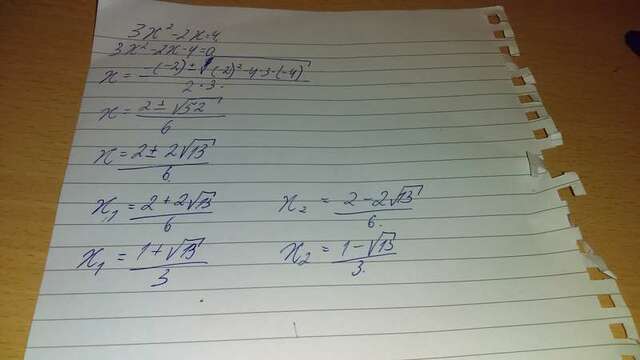 3x² - 2x = 4
3x² - 2x - 4 = 0
x = -(-2) ± √(-2)² - 4·3·(-4) / 2·3
x = 2 ± √52 / 6
x = 2 ± 2√13 / 6
x₁ = 2 + 2√13 / 6 x₂ = 2 - 2√13 / 6
x₁ = 1 + √13 / 3 x₂ = 1 - √13 / 3